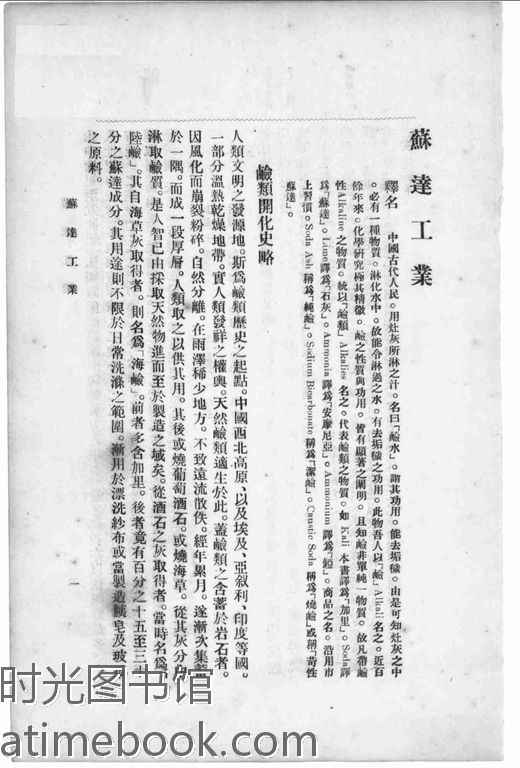 蘇達工業
釋名　中國古代人民。用灶灰所淋之汁。名曰「鹼水」。謂其功用。能去垢穢。由是可知灶灰之中
。必有一種物質。淋化水中。故能令淋過之水。有去垢穢之功用。此物吾人以「鹼」Alkali名之。近百
餘年來。化學研究極其精微。鹼之性質與功用。皆有顯著之闡明。且知鹼非單純一物質。故凡帶鹼
性Alkaline之物質。統以「鹼類」Alkalies名之。代表鹼類之物質。如Kali本書譯爲「加里」。Soda譯
爲「蘇達」。Lime譯爲「石灰」。Ammonia譯爲「安摩尼亞」。Ammonium譯爲「錏」。商品之名。沿用市
上習慣。Soda Ash稱爲「純鹼」。Sodium Bicarbonate稱爲「潔鹼」。Caustic Soda稱爲「燒鹼」或稱「苛性
蘇達」。
鹼類開化史略
人類文明之發源地。斯爲鹼類歷史之起點。中國西北高原、以及埃及、亞敍利、印度等國。
一部分溫熱乾燥地帶。實人類發祥之權輿。天然鹼類適生於此。蓋鹼類之含蓄於岩石者。
因風化而崩裂粉碎。自然分離。在雨澤稀少地方。不致遠流散佚。經年累月。遂漸次集蓄
於一隅。而成一段厚層。人類取之以供其用。其後或燒葡萄酒石。或燒海草。從其灰分內
淋取鹼質。是人智已由採取天然物進而至於製造之域矣。從酒石之灰取得者。當時名爲「
陸鹼」。其自海草灰取得者。則名爲「海鹼」。前者多含加里。後者竟有百分之十五至三十
分之蘇達成分。其用途則不限於日常洗滌之範圍。漸用於漂洗紗布或當製造鹹皂及玻
之原料。
蘇達工業
一
时光图书馆
atimebook.com